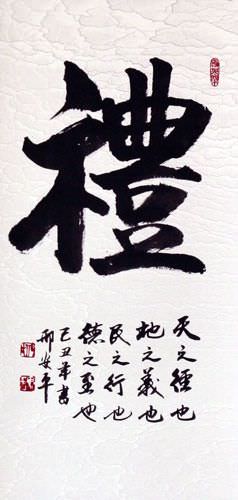 禮
天之經也
地之義也
民之行也
德之至也
己丑年書
邢安平